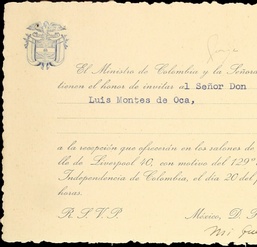 El Ministro de Colombia y la Señora
tienen el honor de invitar al Señor Don
Luis Montes de Oca,
a la recepción que ofrecerán en los salones de
lle de Liverpool 40, con motivo del 129°
Independencia de Colombia, el día 20 del p
horas.
R. S. V. P. México, D. F
Mi